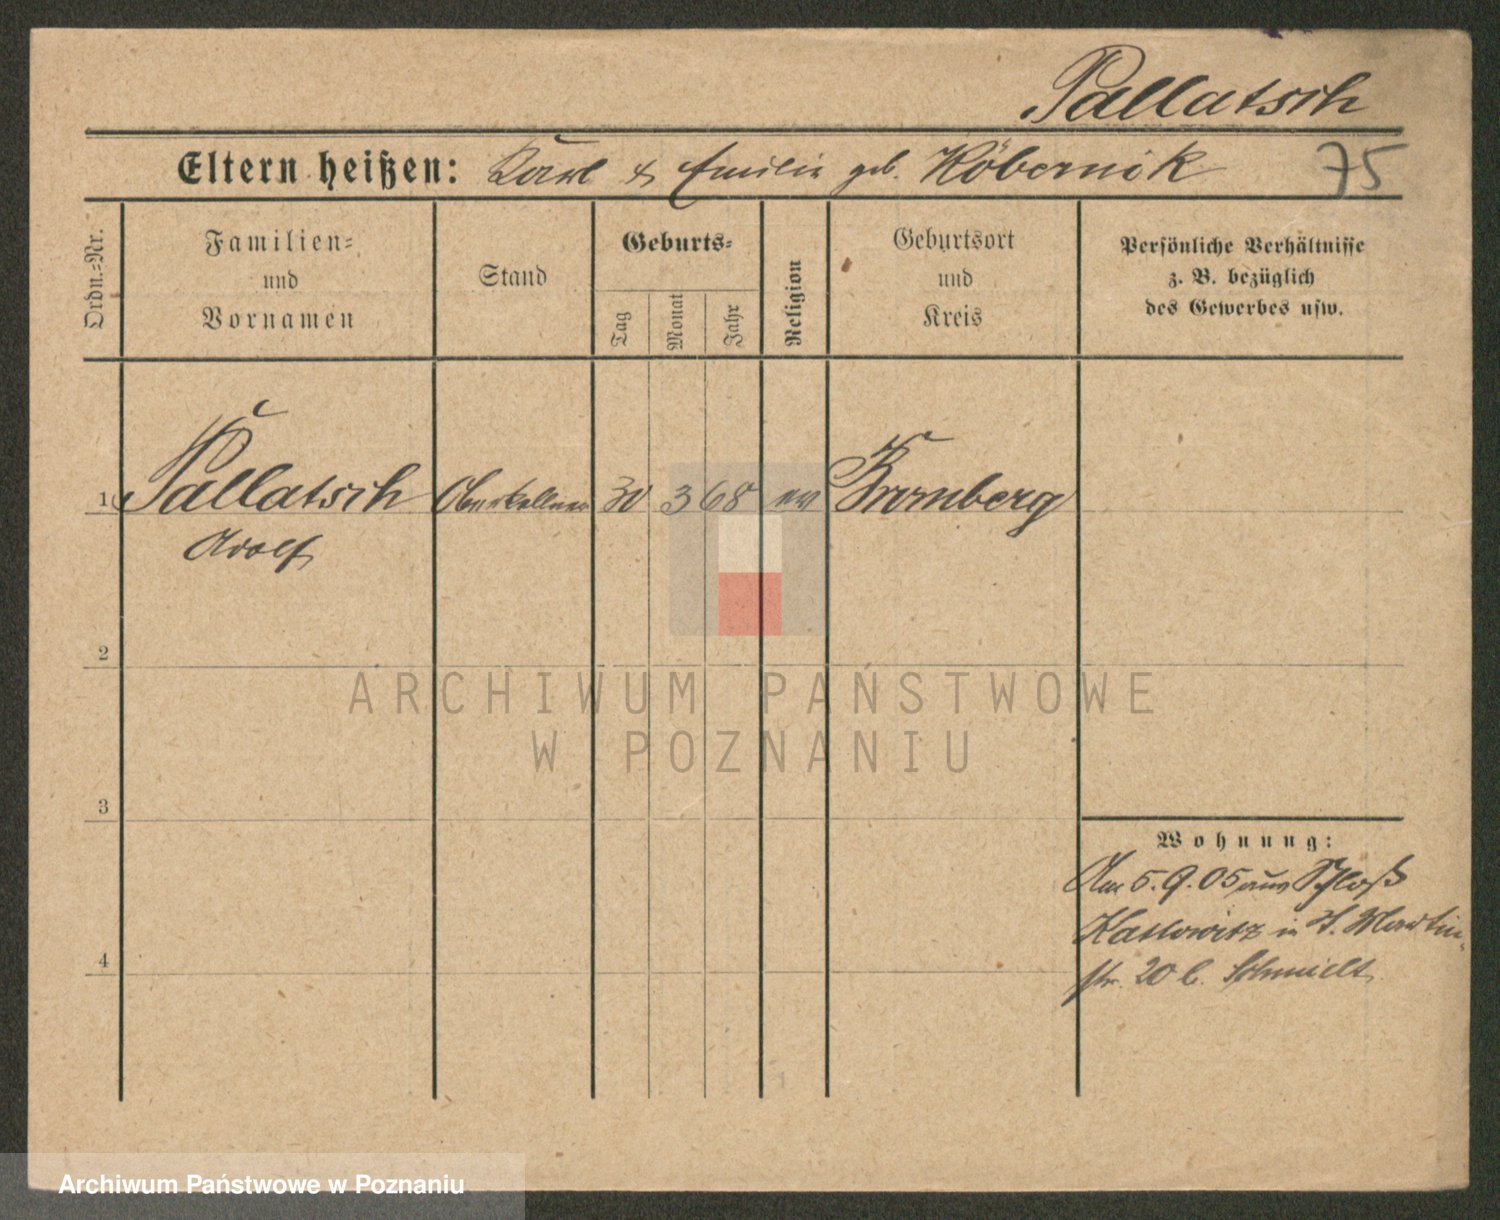 Pallatsch
Eltern heißen: Karl & Emilie geb. Köbernik 75
Ordn.-Nr.
Familien-
und
Vornamen
Stand
Geburts-
Tag
Monat
Jahr
Religion
Geburtsort
und
Kreis
Persönliche Verhältnisse
z. B. bezüglich
des Gewerbes usw.
1 Pallatsch Oberkellner 30 3 68 ev Bromberg
Adolf
2
3
4
Wohnung:
Am 5.9.05 aus Schloß
Kattowitz in St. Martin-
str. 20 b. Schmidt
ARCHIWUM PAŃSTWOWE
W POZNANIU
Archiwum Państwowe w Poznaniu